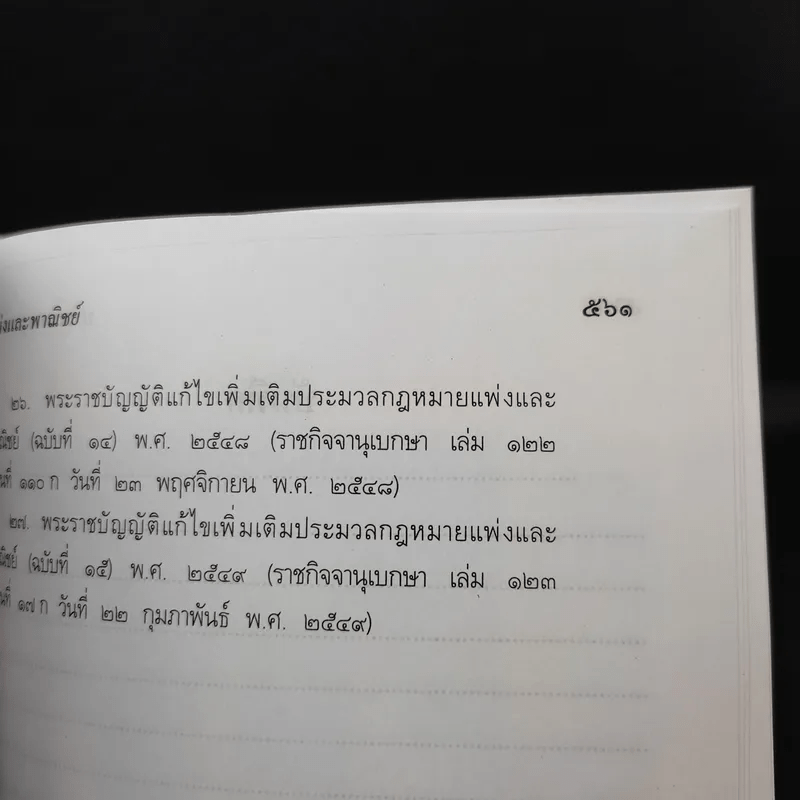 และพาณิชย์
๕๖๑
๒๖. พระราชบัญญัติแก้ไขเพิ่มเติมประมวลกฎหมายแพ่งและ
(ฉบับที่ ๑๔) พ.ศ. ๒๕๔๘ (ราชกิจจานุเบกษา เล่ม ๑๒๒
๑๑๐ ก วันที่ ๒๓ พฤศจิกายน พ.ศ. ๒๕๔๘)
๒๗. พระราชบัญญัติแก้ไขเพิ่มเติมประมวลกฎหมายแพ่งและ
(ฉบับที่ ๑๕) พ.ศ. ๒๕๔๙ (ราชกิจจานุเบกษา เล่ม ๑๒๓
๑๗ ก วันที่ ๒๒ กุมภาพันธ์ พ.ศ. ๒๕๔๙)